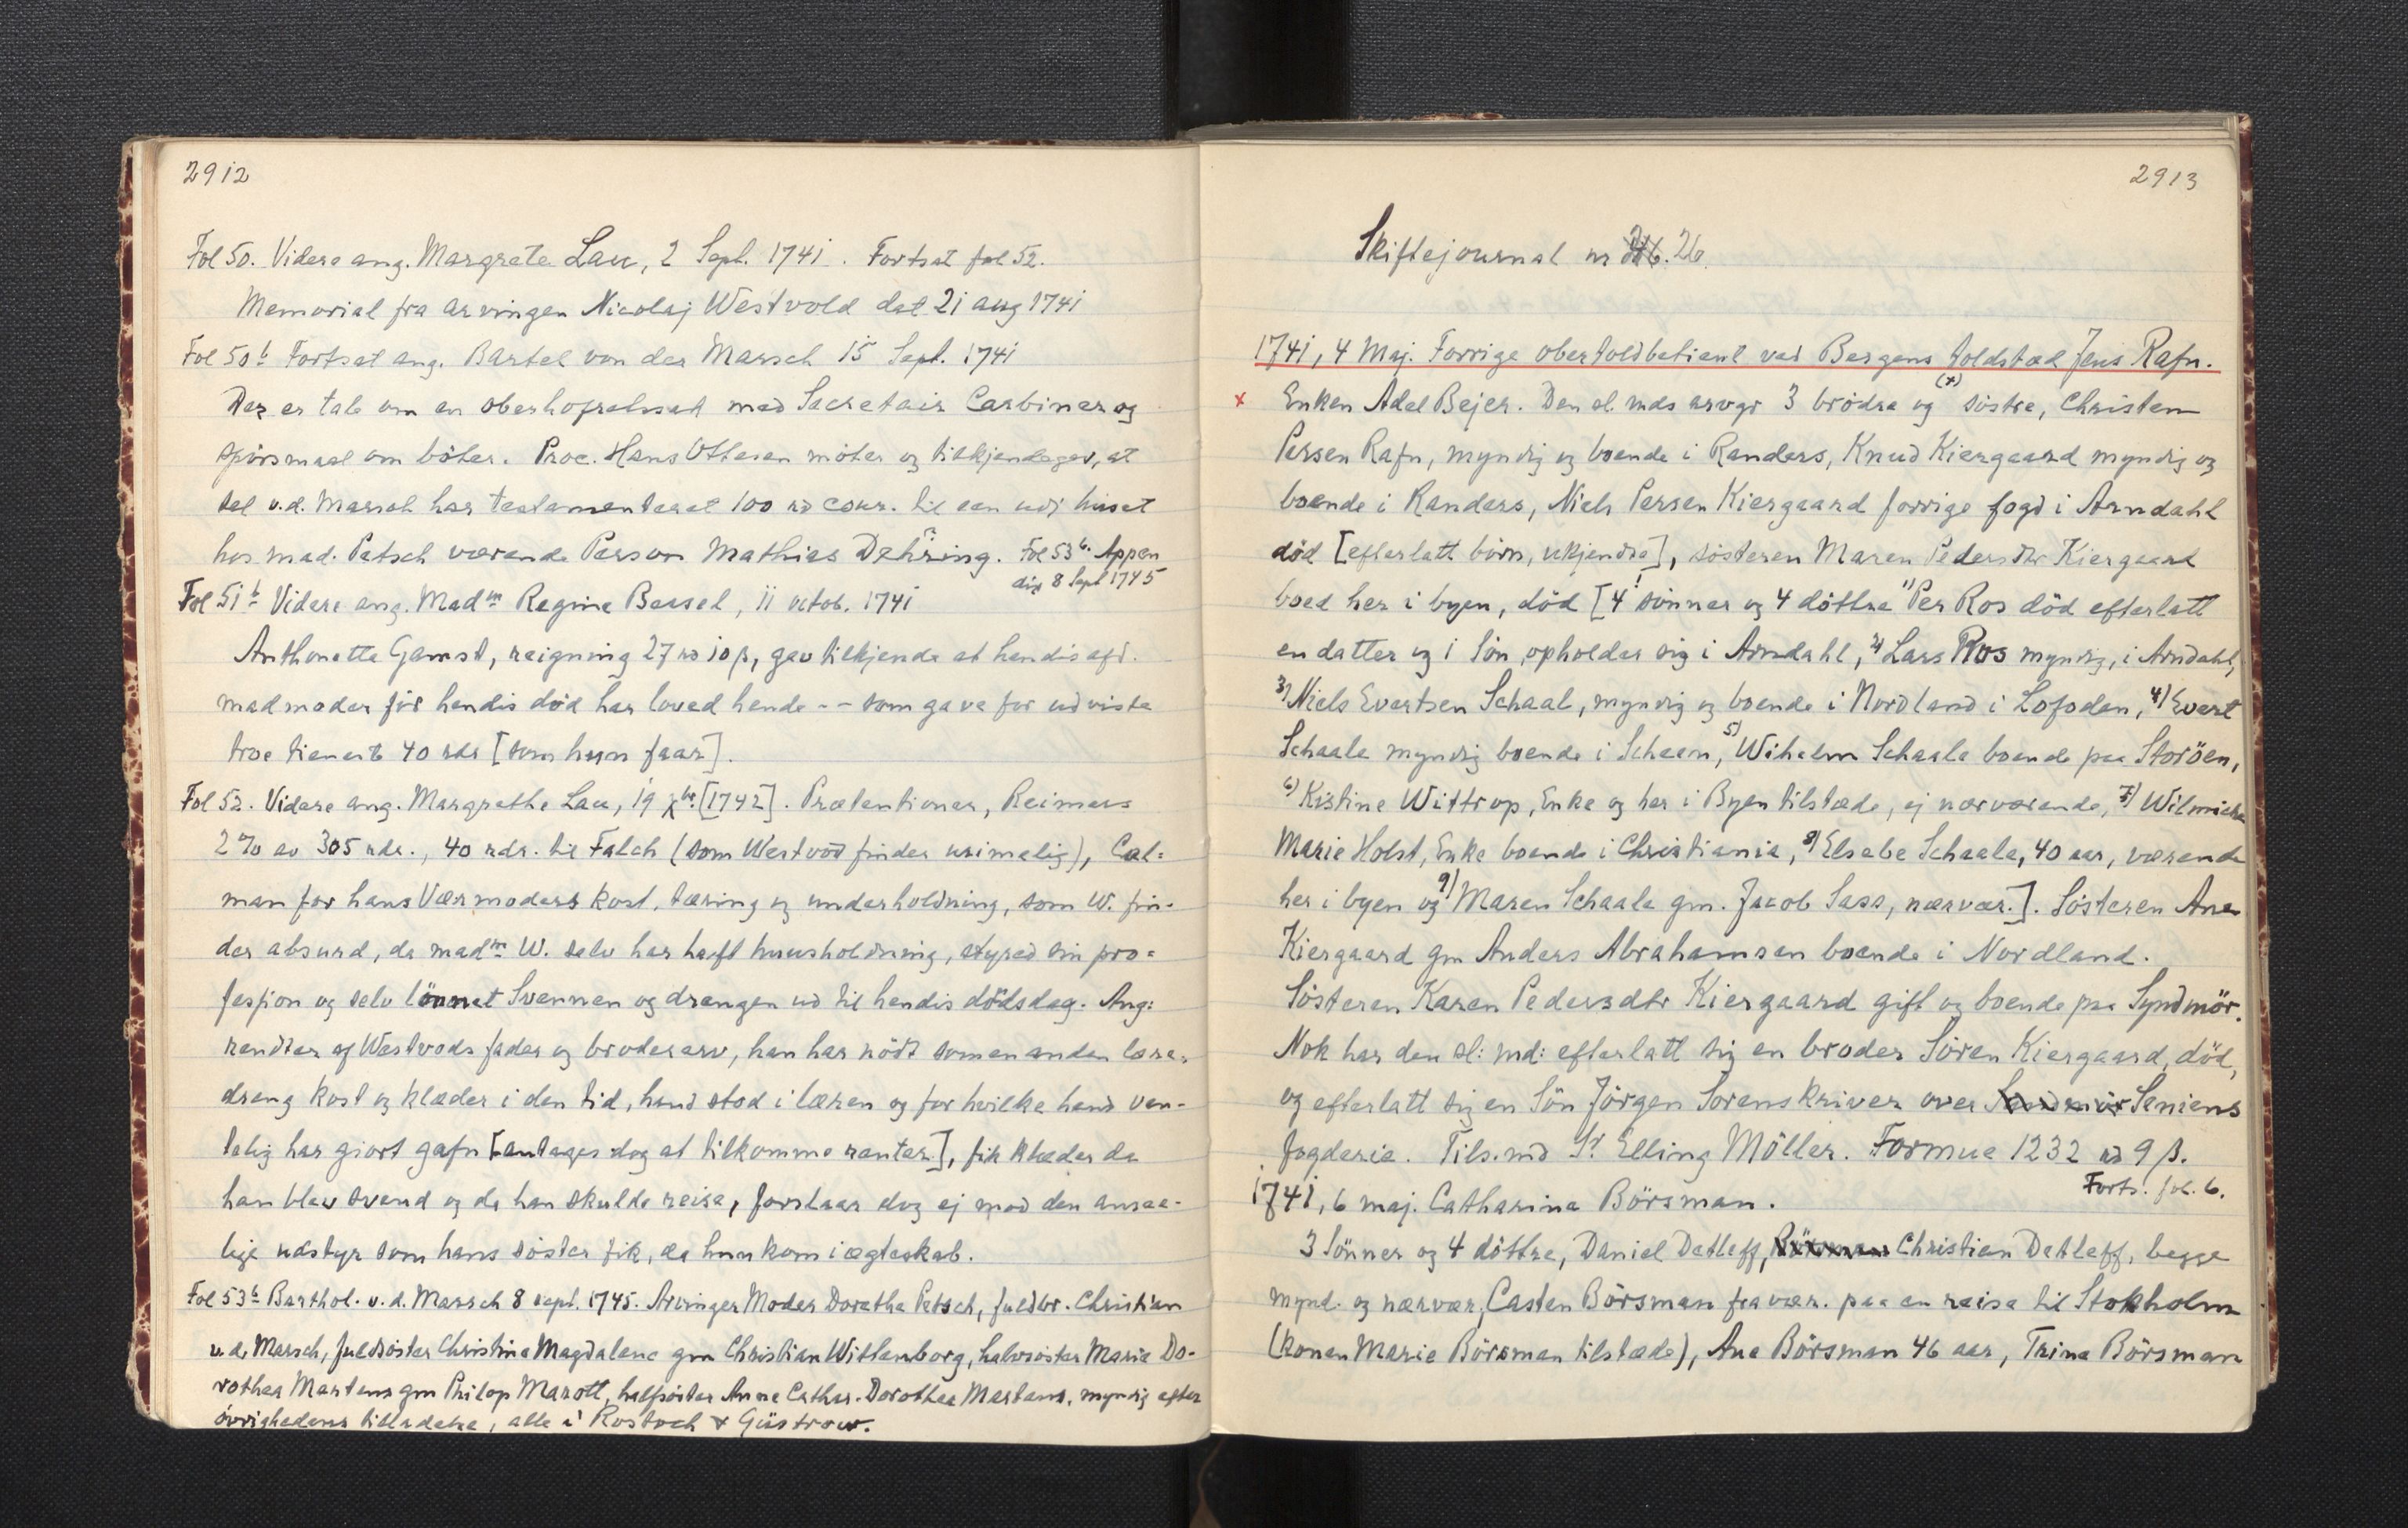 2912
Fol 50. Videre ang. Margrete Lau, 2 Sept. 1741. Fortsat fol 52.
Memorial fra arvingen Nicolaj Westvold dat 21 aug 1741
Fol 50b Fortsat ang. Bartel von der Marsch 15 Sept. 1741
Der er tale om en oberhofretssak med Secretair Carbiner og
spörsmaal om böter. Proc. Hans Ottesen möter og tilkjendegav, at
sal v.d. Marsch har testamenteret 100 rd cour. til een udj huset
hos mad. Petsch værende Person Mathias Dehring. Fol 53b. Appen
dix 8 Sept 1745
Fol 51b Videre ang. Madm Regine Bessel, 11 octob. 1741
Anthonette Gamst, reigning 27 rd 10 β, gav tilkjende at hendis afd.
madmoder för hendis död har loved hende -- som gave for udviste
troe tieneste 40 rdr [som hun faar].
Fol 52. Videre ang. Margrethe Lau, 19 Xbr. [1742]. Prætentioner, Reimers
2 % av 305 rdr., 40 rdr. til Falch (som Westvod finder urimelig), Cal=
man for hans Værmoders kost, tæring og underholdning, som W. fin-
der absurd, da madm W. selv har hafft huusholdning, styred sin pro=
fession og selv lönnet Svennen og drengen ud til hendis dödsdag. Ang:
rendter af Westvods fader og broderarv, han har nödt som en anden lære-
dreng kost og klæder i den tid, hand stod i læren og for hvilke hand ven-
telig har giort gafn [antages dog at tilkomme renter], fik klæder da
han blev svend og da han skulde reise, forslaar dog ej mod den ansee-
lige udstyr som hans söster fik, da hun kom i ægteskab.
Fol 53b Barthol. v. d. Marsch 8 sept. 1745. Arvinger Moder Dorothe Petsch, fuldbr. Christian
v. d. Marsch, fuldsöster Christina Magdalene gm Christian Wittenborg, halvsöster Maria Do-
rothea Martens gm Philop Marott, halfsöster Anne Cathar. Dorothea Martens, myndig efter
övrighedens tilladelse, alle i Rostoch & Güstrow.
2913
Skiftejournal nr 26.
1741, 4 Maj. Forrige obertoldbetient ved Bergens toldsted Jens Rafn.
x Enken Adel Bejer. Den sl. mds arvgr 3 brödre og (x) söstre, Christen
Persen Rafn, myndig og boende i Randers, Knud Kiergaard myndig og
boende i Randers, Niels Persen Kiergaard forrige fogd i Arndahl
död [efterlatt börn, ukjendte], sösteren Maren Pedersdtr Kiergaard
boed her i byen, död [4! sönner og 4 döttre 1) Per Ros död efterlatt
en datter og 1 Sön, opholder sig i Arndahl, 2) Lars Ros myndig, i Arndahl,
3) Niels Evertsen Schaal, myndig og boende i Nordland i Lofoden, 4) Evert
Schaale myndig boende i Scheen, 5) Wihelm Schaale boende paa Storöen,
6) Kistine Wittrop, Enke og her i Byen tilstæde, ej nærværende, 7) Wilmicke
Marie Holst, Enke boende i Christiania, 8) Elsebe Schaale, 40 aar, værende
her i byen og 9) Maren Schaale gm. Jacob Sass, nærvær.]. Sösteren Ane
Kiergaard gm Anders Abrahamsen boende i Nordland.
Sösteren Karen Pedersdtr Kiergaard gift og boende paa Syndmör.
Nok har den sl: md: efterlatt sig en broder Sören Kiergaard, död,
og efterlatt sig en Sön Jörgen Sorenskriver over Seniens
fogderie. Tils. md Sr. Elling Möller. Formue 1232 rd 9 β.
Forts. fol. 6.
1741, 6 maj. Catharina Börsman.
3 Sönner og 4 döttre, Daniel Detleff, Christian Detleff, begge
mynd. og nærvær, Casten Börsman fravær. paa en reise til Stokholm
(konen Marie Börsman tilstæde), Ane Börsman 46 aar, Trine Börsman